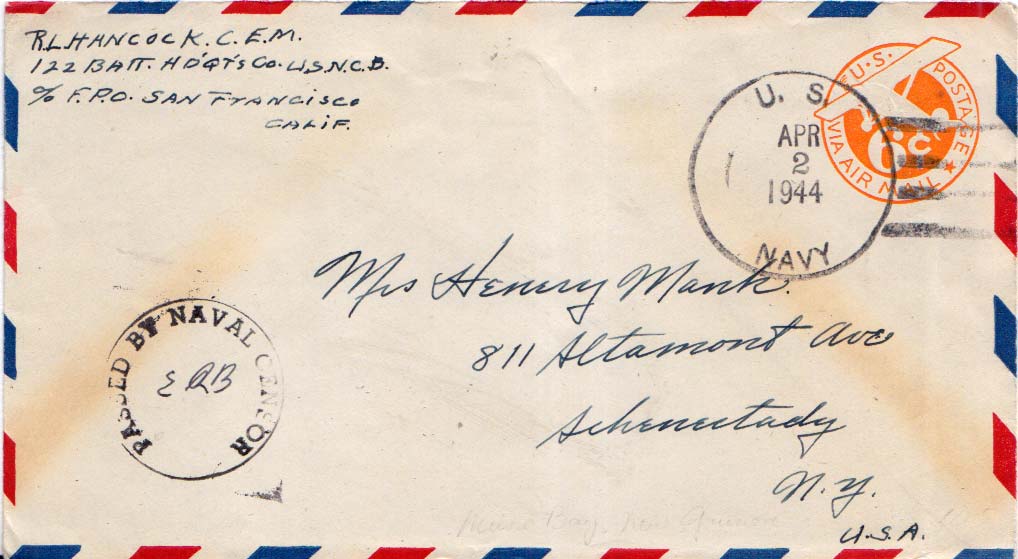 R.L. HANCOCK. C.E.M.
122 BATT. HDQT'S CO. U.S.N.C.B.
c/o F.P.O. SAN FrANCISCO
CALIF.
U.S. POSTAGE
6c
VIA AIR MAIL
U. S.
APR
2
1944
NAVY
Mrs Henery Mank.
811 Altamont Ave
Schenectady
N.Y.
U.S.A.
PASSED BY NAVAL CENSOR
Bay, New Guinea